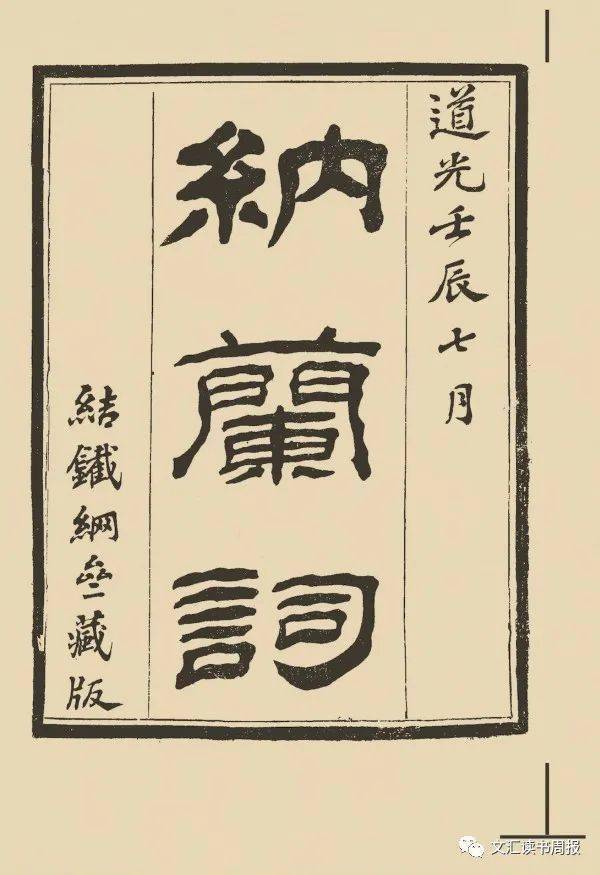 道光壬辰七月
納蘭詞
結鐵網亝藏版
文汇读书周报